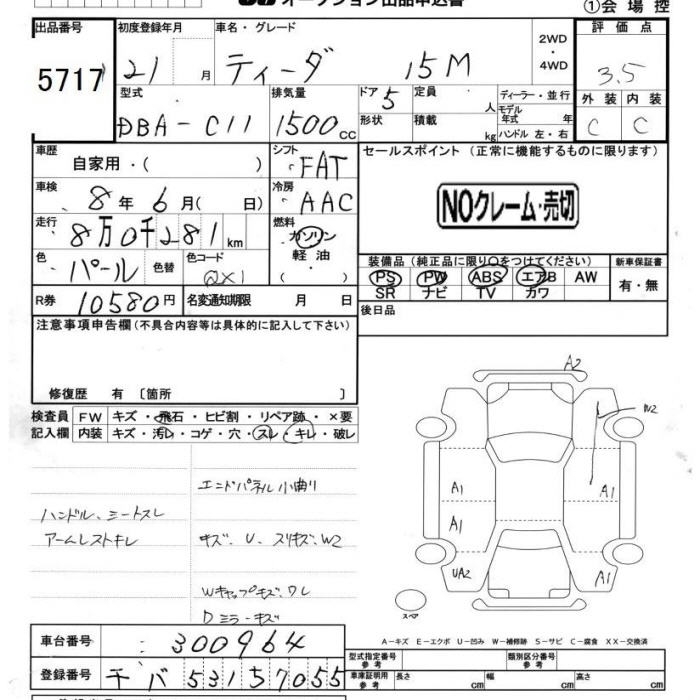 オークション出品申込書
①会場控
出品番号 初度登録年月 車名・グレード 2WD・4WD 評価点
5717 21 月 ティーダ 15M 3.5
型式 排気量 ドア 5 定員 人 ディーラー・並行 外装 内装
DBA-C11 1500 cc 形状 積載 kg モデル年式 年 ハンドル 左・右 C C
車歴 自家用・( ) シフト FAT セールスポイント (正常に機能するものに限ります)
車検 8年 6月( 日) 冷房 AAC NOクレーム・売切
走行 8万0千281km 燃料 ガソリン 軽油・( )
色 パール 色替 色コード QX1 装備品(純正品に限り○をつけてください) 新車保証書
PS PW ABS エアB AW 有・無
SR ナビ TV カワ
R券 10580円 名変通知期限 月 日 後日品
注意事項申告欄(不具合内容等は具体的に記入して下さい)
修復歴 有〔箇所 〕
検査員記入欄 FW キズ・飛石・ヒビ割・リペア跡・×要
内装 キズ・汚レ・コゲ・穴・スレ・キレ・破レ
A2
W2
エンドパネル小曲り
A1 A1
ハンドル、シートスレ
アームレストキレ キズ、U、スリキズ、W2
A1
UA2 A1
Wキャップキズ、ワレ
スペア
Dミラーキズ
A-キズ E-エクボ U-凹み W-補修跡 S-サビ C-腐食 XX-交換済
車台番号 :300964
型式指定番号 参考 類別区分番号 参考
登録番号 チバ 531 57055
車庫証明用 参考 長さ cm 幅 cm 高さ cm